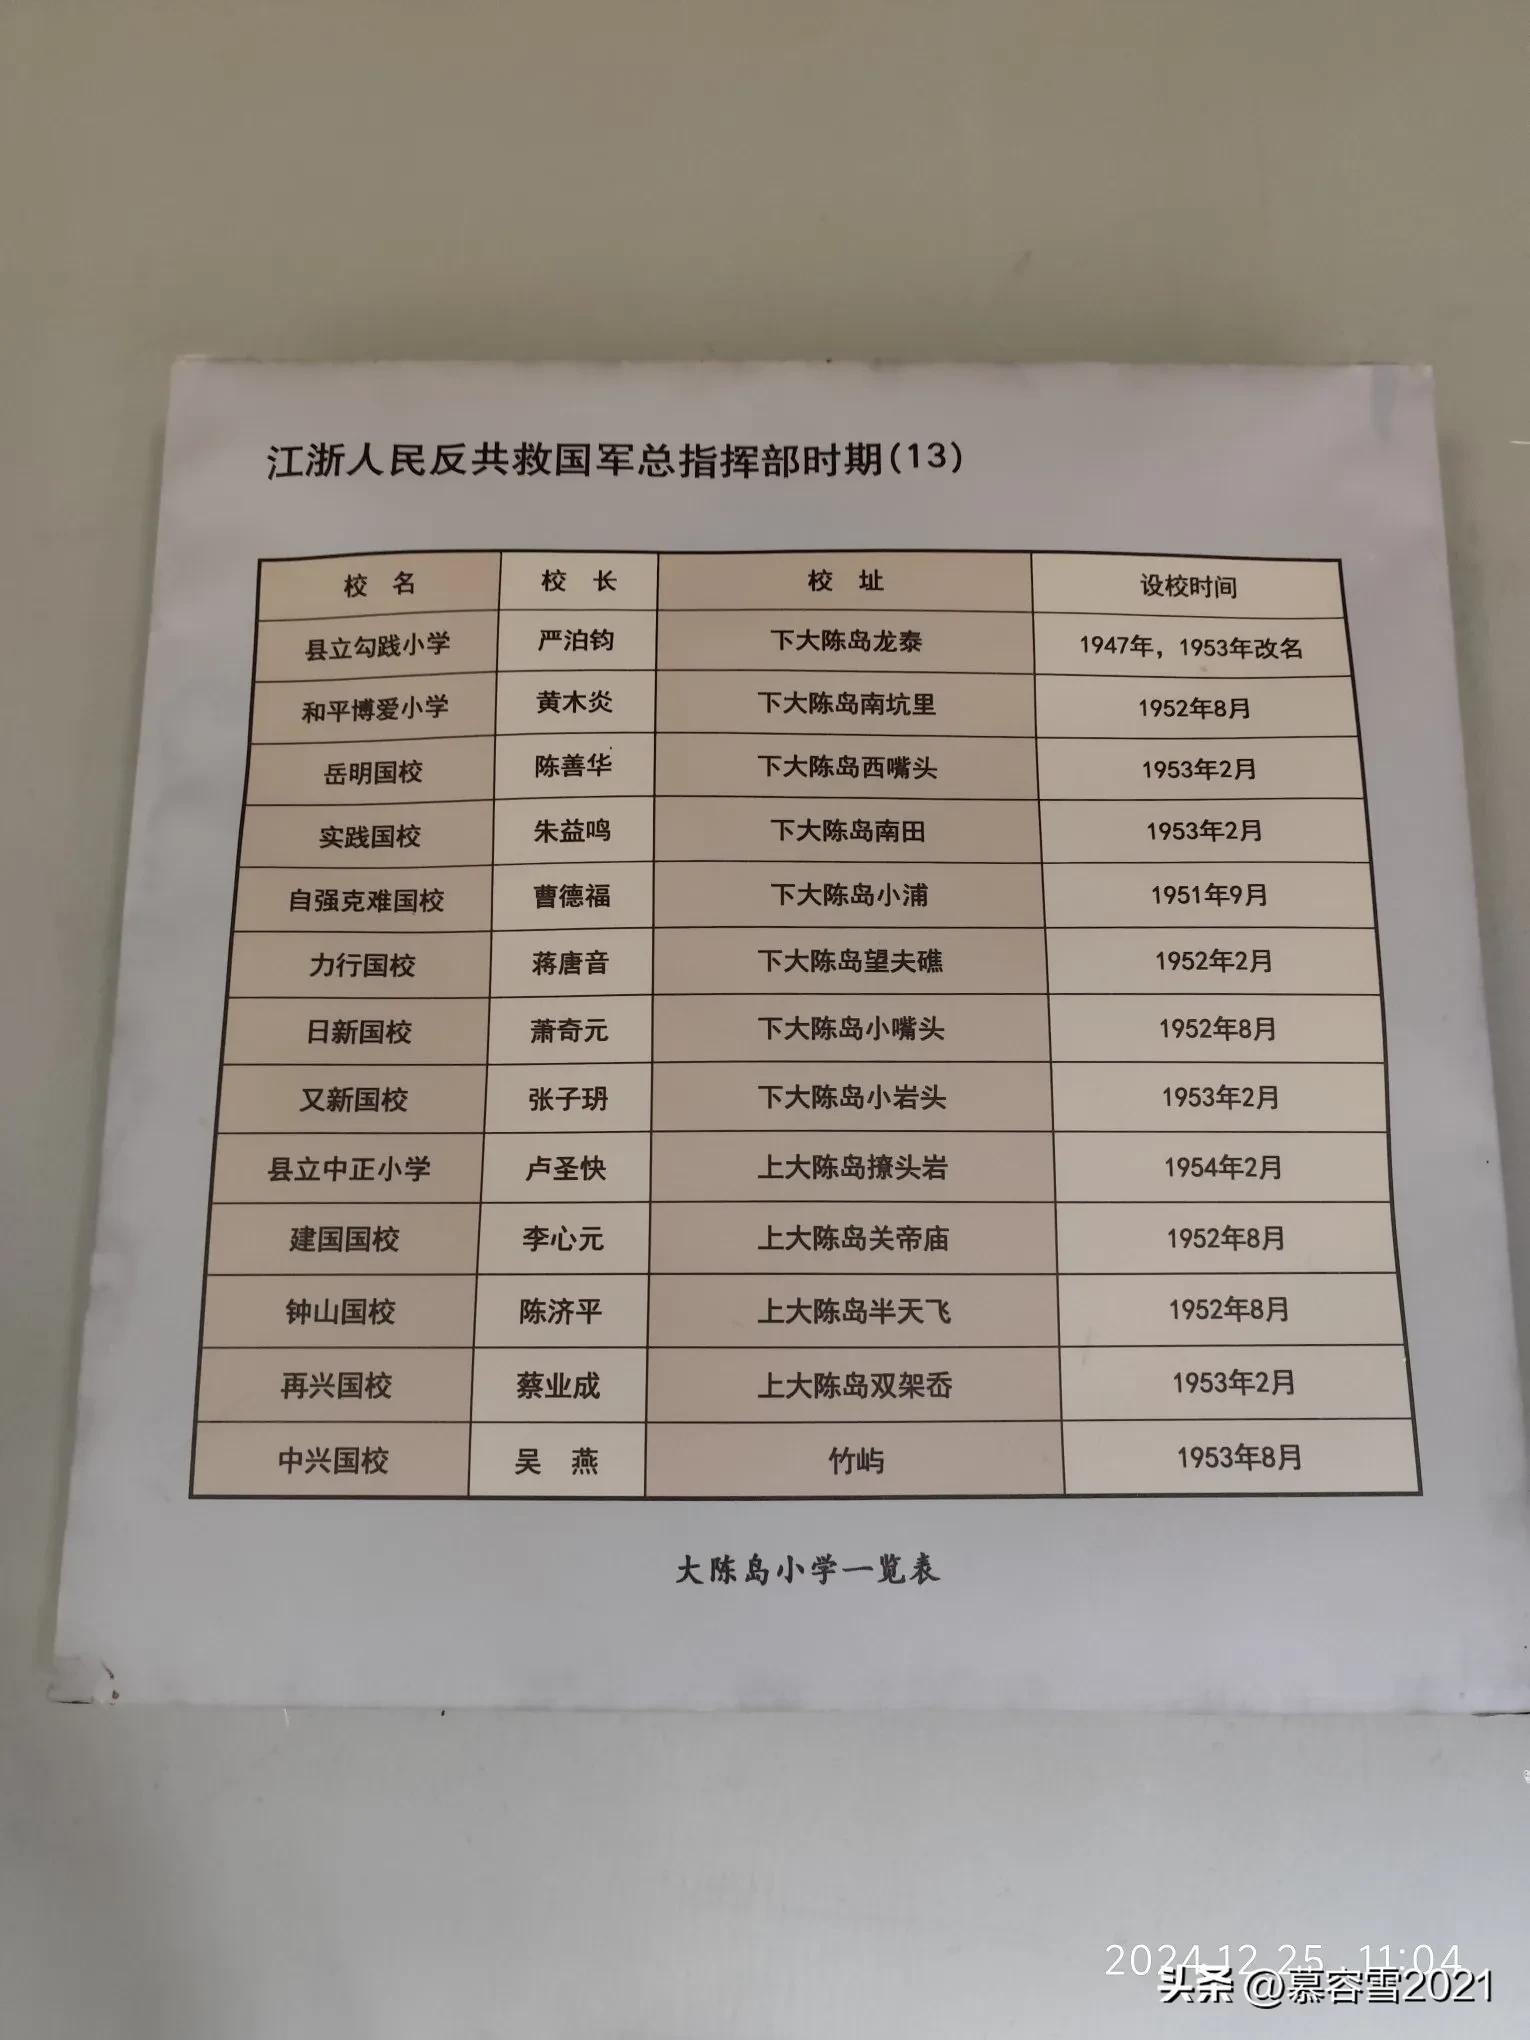 江浙人民反共救国军总指挥部时期(13)
校 名 校 长 校 址 设校时间
县立勾践小学 严泊钧 下大陈岛龙泰 1947年，1953年改名
和平博爱小学 黄木炎 下大陈岛南坑里 1952年8月
岳明国校 陈善华 下大陈岛西嘴头 1953年2月
实践国校 朱益鸣 下大陈岛南田 1953年2月
自强克难国校 曹德福 下大陈岛小浦 1951年9月
力行国校 蒋唐音 下大陈岛望夫礁 1952年2月
日新国校 萧奇元 下大陈岛小嘴头 1952年8月
又新国校 张子玥 下大陈岛小岩头 1953年2月
县立中正小学 卢圣快 上大陈岛撩头岩 1954年2月
建国国校 李心元 上大陈岛关帝庙 1952年8月
钟山国校 陈济平 上大陈岛半天飞 1952年8月
再兴国校 蔡业成 上大陈岛双架岙 1953年2月
中兴国校 吴 燕 竹屿 1953年8月
大陈岛小学一览表
2024.12.25 11:04
头条 @慕容雪2021